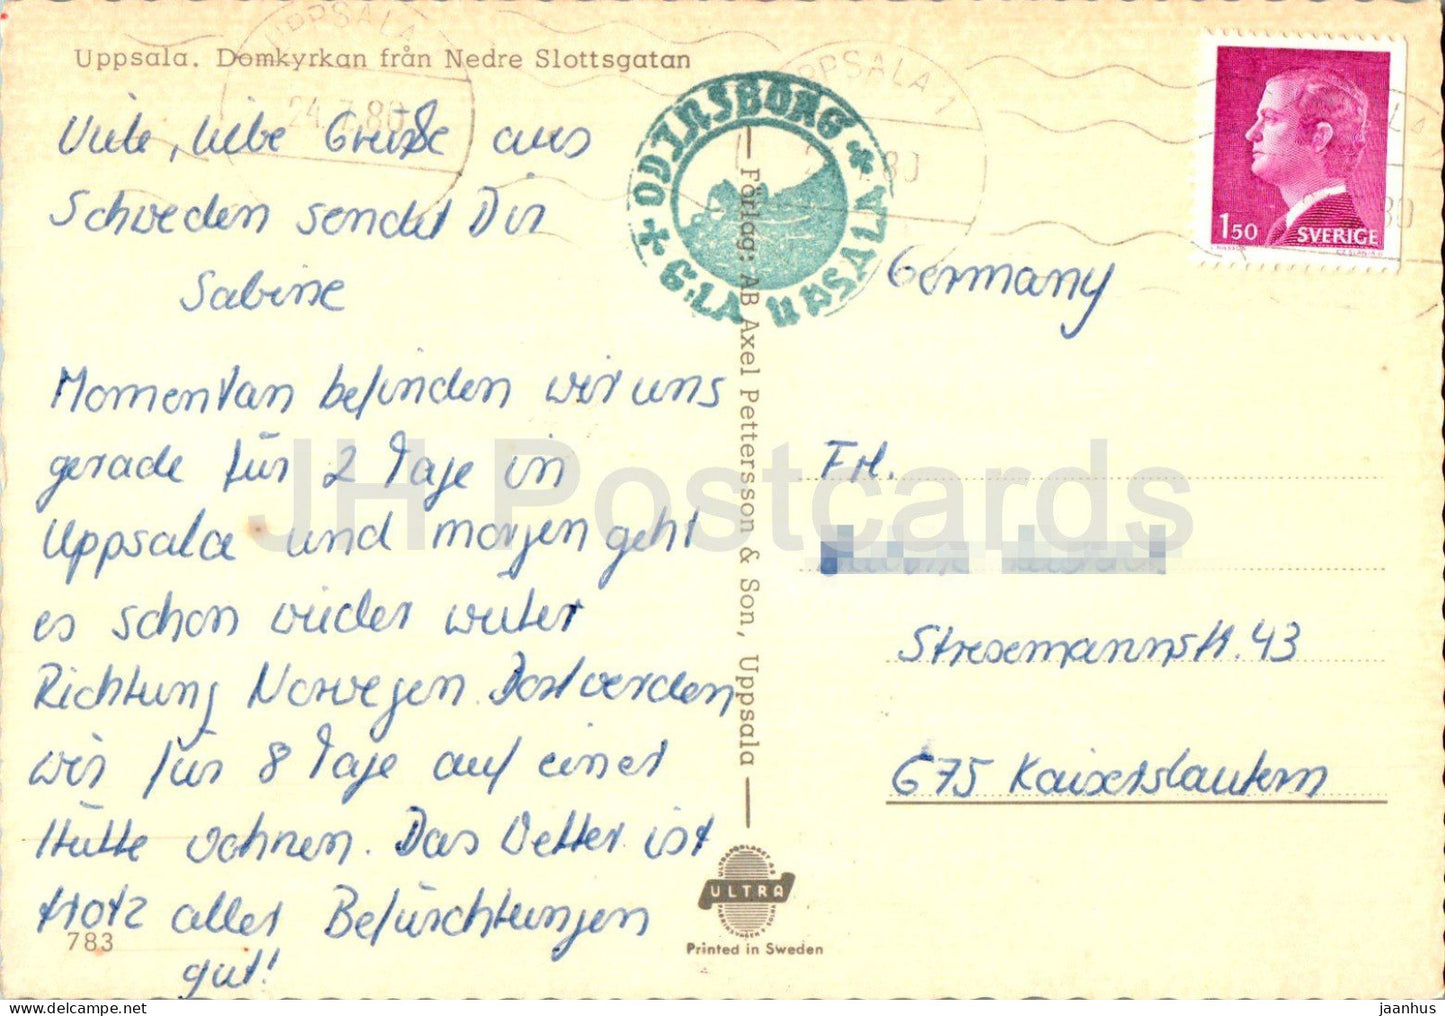 Uppsala. Domkyrkan från Nedre Slottsgatan
UPPSALA
24.7.80
UPPSALA 1
80
ODINSBORG
G:LA UPSALA
1 50
SVERIGE
Viele, liebe Grüße aus
Schweden sendet Dir
Sabine
Momentan befinden wir uns
gerade für 2 Tage in
Uppsala und morgen geht
es schon wieder weiter
Richtung Norwegen. Dort werden
wir für 8 Tage auf einer
Hütte wohnen. Das Wetter ist
trotz aller Befürchtungen
gut!
783
Förlag: AB Axel Pettersson & Son, Uppsala
ULTRA
Printed in Sweden
Germany
Frl.
Stresemannstr. 43
675 Kaiserslautern
JH Postcards
www.delcampe.net
jaanhus